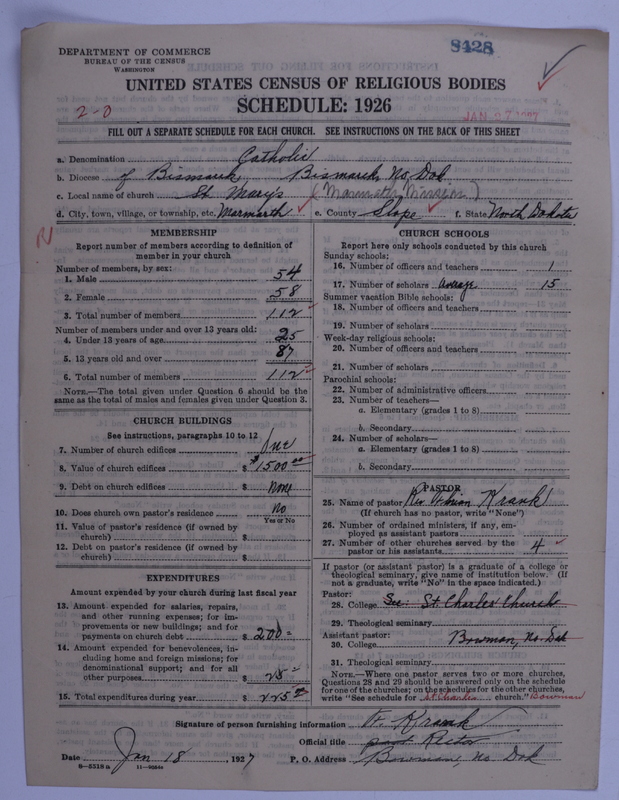 8428
DEPARTMENT OF COMMERCE
BUREAU OF THE CENSUS
WASHINGTON
UNITED STATES CENSUS OF RELIGIOUS BODIES
SCHEDULE: 1926
2-0
JAN 27 1927
FILL OUT A SEPARATE SCHEDULE FOR EACH CHURCH. SEE INSTRUCTIONS ON THE BACK OF THIS SHEET
a. Denomination Catholic
b. Diocese of Bismarck, Bismarck, No. Dak
c. Local name of church St. Mary's (Marmarth Mission)
d. City, town, village, or township, etc. Marmarth e. County Slope f. State North Dakota
MEMBERSHIP
Report number of members according to definition of
member in your church
Number of members, by sex:
1. Male 54
2. Female 58
3. Total number of members 112
Number of members under and over 13 years old:
4. Under 13 years of age 25
5. 13 years old and over 87
6. Total number of members 112
NOTE.—The total given under Question 6 should be
same as the total of males and females given under Question 3.
CHURCH BUILDINGS
See instructions, paragraphs 10 to 12
7. Number of church edifices One
8. Value of church edifices $ 1500 00
9. Debt on church edifices $ None
10. Does church own pastor's residence? No
Yes or No
11. Value of pastor's residence (if owned by
church) $
12. Debt on pastor's residence (if owned by
church) $
EXPENDITURES
Amount expended by your church during last fiscal year
13. Amount expended for salaries, repairs,
and other running expenses; for im-
provements or new buildings; and for
payments on church debt $ 200
14. Amount expended for benevolences, in-
cluding home and foreign missions; for
denominational support; and for all
other purposes $ 25
15. Total expenditures during year $ 225 00
CHURCH SCHOOLS
Report here only schools conducted by this church
Sunday schools:
16. Number of officers and teachers 1
17. Number of scholars average 15
Summer vacation Bible schools:
18. Number of officers and teachers
19. Number of scholars
Week-day religious schools:
20. Number of officers and teachers
21. Number of scholars
Parochial schools:
22. Number of administrative officers
23. Number of teachers—
a. Elementary (grades 1 to 8)
b. Secondary
24. Number of scholars—
a. Elementary (grades 1 to 8)
b. Secondary
PASTOR
25. Name of pastor Rev. Krank
(If church has no pastor, write "None")
26. Number of ordained ministers, if any, em-
ployed as assistant pastors
27. Number of other churches served by the
pastor or his assistants 4
If pastor (or assistant pastor) is a graduate of a college or
theological seminary, give name of institution below. (If
not a graduate, write "No" in the space indicated.)
Pastor:
28. College See St Charles Church
29. Theological seminary
Assistant pastor:
30. College Bowman, No. Dak
31. Theological seminary
NOTE.—Where one pastor serves two or more churches,
Questions 28 and 29 should be answered only on the schedule
for one of the churches; on the schedules for the other churches,
write "See schedule for St Charles church." Bowman
Signature of person furnishing information Krank
Official title Rector
Date Jan 18, 1927 P. O. Address Bowman, No. Dak
8—5518 a